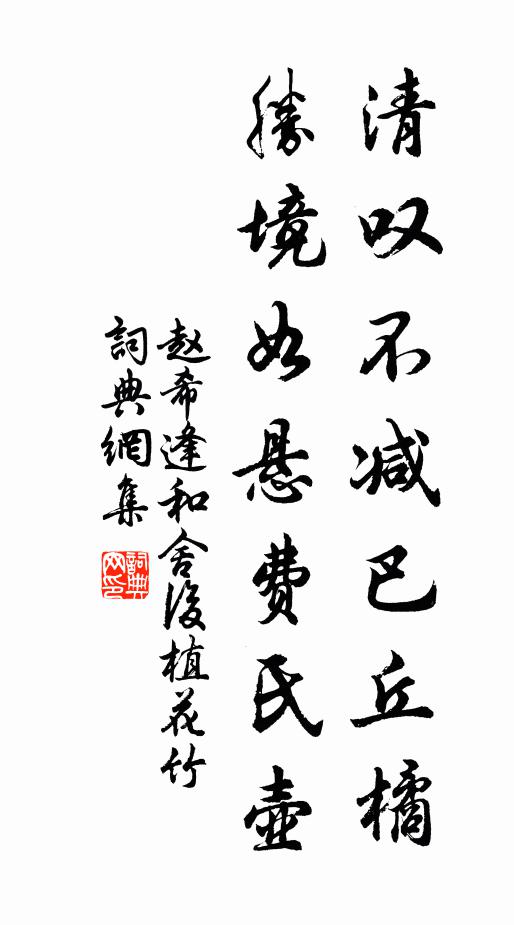 清叹不减巴丘橘
胜境如悬费氏壶
赵希逢和舍後植花竹
詞典網集
詞典
网印